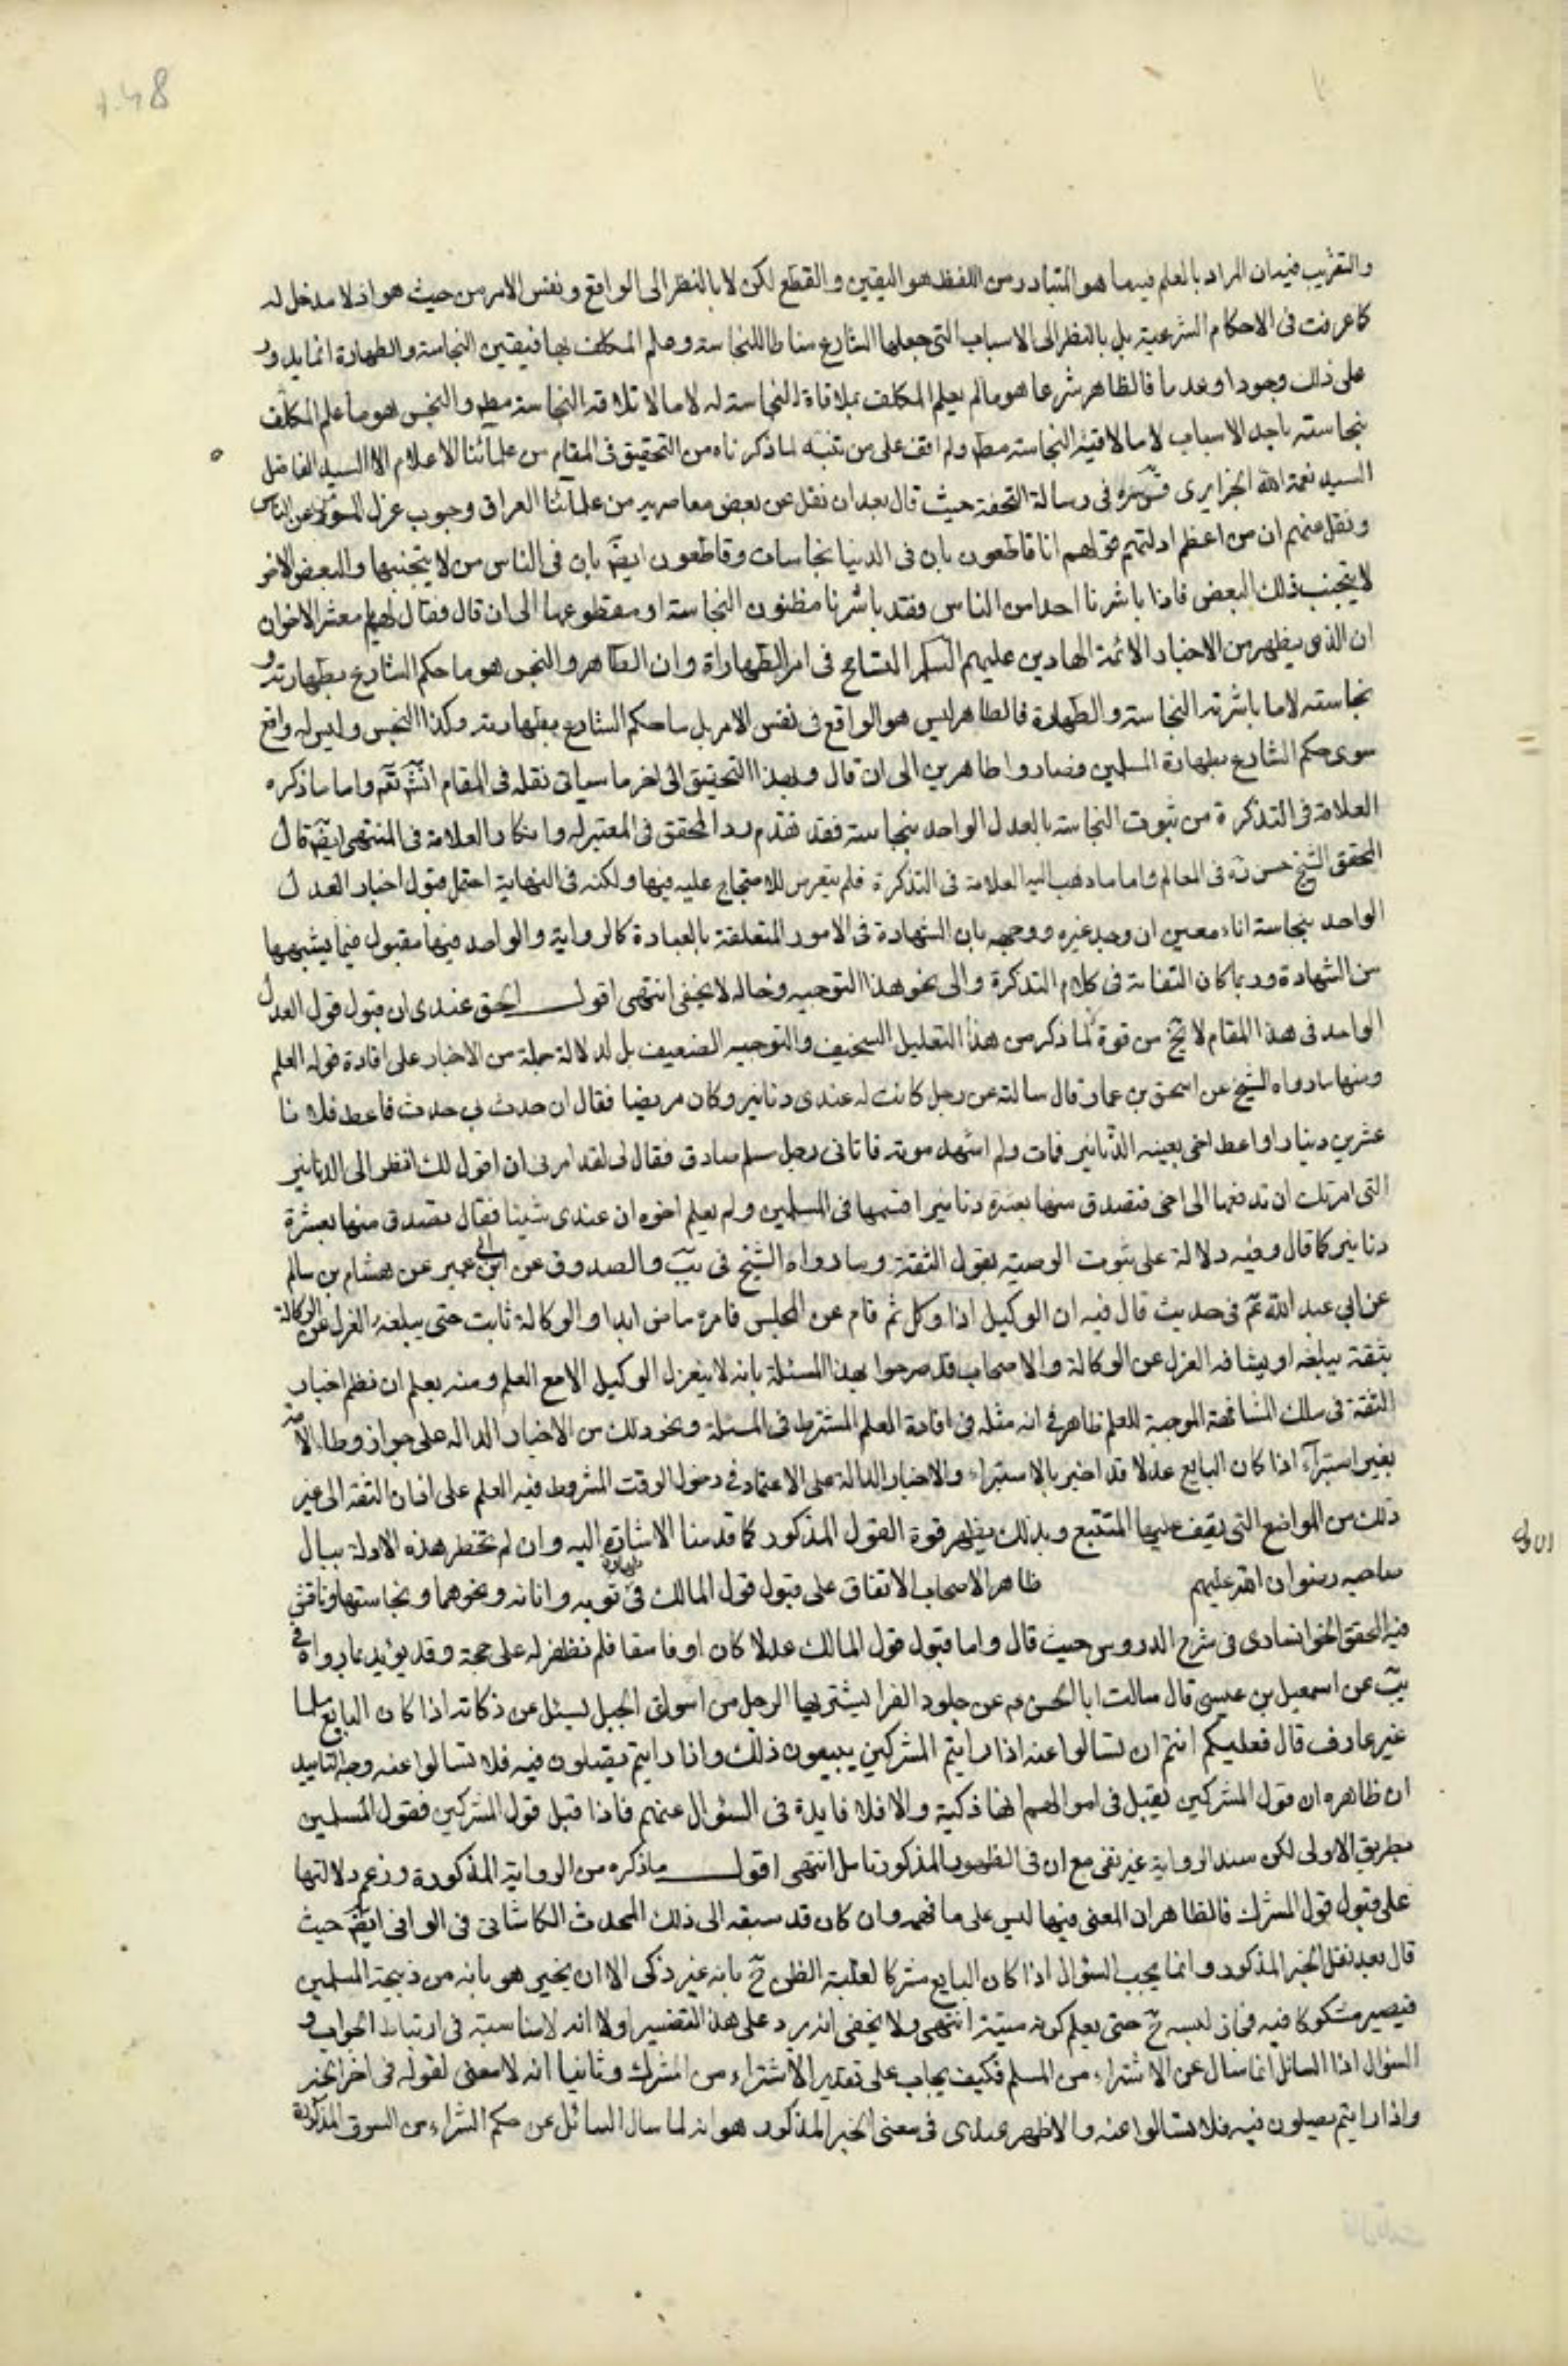 والتقريب فيه ان المراد بالعلم فيهما هو المتبادر من اللفظ هو اليقين والقطع لكن لا بالنظر الى الواقع ونفس الامر من حيث هو اذ لا مدخل له
كما عرفت فى الاحكام الشرعية بل بالنظر الى الاسباب التى جعلها الشارع مناطا للنجاسة وعلم المكلف بها فيقين النجاسة والطهارة انما يدور
على ذلك وجودا وعدما فالظاهر شرعا هو ما لم يعلم المكلف بملاقاة النجاسة له لا ما لا تلاقه النجاسة مطم والنجس هو ما علم المكلف
نجاسته باحد الاسباب لا ما لاقته النجاسة مطم ولم اقف على من تنبه لما ذكرناه من التحقيق فى المقام من علمائنا الاعلام الا السيد الفاضل
السيد نعمة الله الجزايرى قدس سره فى رسالة التحفة حيث قال بعد ان نقل عن بعض معاصريه من علمائنا العراق وجوب عزل السؤر عن الناس
ونقل عنهم ان من اعظم ادلتهم قولهم انا قاطعون بان فى الدنيا نجاسات وقاطعون ايضً بان فى الناس من لا يتجنبها والبعض الاخر
لا يتجنب ذلك البعض فاذا باشرنا احدا من الناس فقد باشرنا مظنون النجاسة او مقطوعها الى ان قال فقال لهم يا معشر الاخوان
ان الذى يظهر من الاخبار الائمة الهادين عليهم السلم التسامح فى امر الطهاراة وان الطاهر والنجس هو ما حكم الشارع بطهارته و
نجاسته لا ما باشرته النجاسة والطهارة فالطاهر ليس هو الواقع فى نفس الامر بل ما حكم الشارع بطهارته وكذا النجس وليس له واقع
سوى حكم الشارع بطهارة المسلمين فصاروا طاهرين الى ان قال وبهذا التحقيق الى اخر ما سياتى نقله فى المقام انش تعَ واما ما ذكره
العلامة فى التذكرة من ثبوت النجاسة بالعدل الواحد بنجاسة فقد تقدم رد المحقق فى المعتبر له وانكار العلامة فى المنتهى ايضً قال
المحقق الشيخ حسن ره فى المعالم واما ما ذهب اليه العلامة فى التذكرة فلم يتعرض للاحتجاج عليه فيها ولكنه فى النهاية احتمل قبول اخبار العدل
الواحد بنجاسة اناء معين ان وجد غيره ووجهه بان الشهادة فى الامور المتعلقة بالعبادة كالرواية والواحد فيها مقبول فيما يشبهها
من الشهادة وربما كان التفاته فى كلام التذكرة والى نحو هذا التوجيه وحاله لا يخفى انتهى اقول الحق عندى ان قبول قول العدل
الواحد فى هذا المقام لا يخ من قوة لا لما ذكر من هذا التعليل السخيف والتوجيه الضعيف بل لدلالة جملة من الاخبار على افادة قوله العلم
ومنها ما رواه الشيخ عن اسحق بن عمار قال سالته عن رجل كانت له عندى دنانير وكان مريضا فقال ان حدث بى حدث فاعط فلانا
عشرين دينارا واعط اخى بقية الدنانير فمات ولم اشهد موته فاتانى رجل مسلم صادق فقال لى لقد امرنى ان اقول لك انظر الى الدنانير
التى امرتك ان تدفعها الى اخى فتصدق منها بعشرة دنانير اقسمها فى المسلمين ولم يعلم اخوه ان عندى شيئا فقال تصدق منها بعشرة
دنانير كما قال وفيه دلالة على ثبوت الوصية بقول الثقة وما رواه الشيخ فى يب والصدوق عن ابن ابى عمير عن هشام بن سالم
عن ابي عبد الله عم فى حديث قال فيه ان الوكيل اذا وكل ثم قام عن المجلس فامره ماض ابدا والوكالة ثابت حتى يبلغه العزل عن الوكالة
بثقة يبلغه او يشافه العزل عن الوكالة والاصحاب قد صرحوا بهذا المسئلة بانه لا ينعزل الوكيل الا مع العلم ومنه يعلم ان نظم اخبار
الثقة فى سلك المشافهة الموجبة للعلم ظاهر فى انه مثله فى افادة العلم المشترط فى المسئلة ونحو ذلك من الاخبار الدالة على جواز وطا الامة
بغير استبراء اذا كان البايع عدلا قد اخبر بالاستبراء والاخبار الدالة على الاعتماد فى دخول الوقت المشروط فيه العلم على اذان الثقة الى غير
ذلك من المواضع التى يقف عليها المتتبع وبذلك يظهر قوة القول المذكور كما قدمنا الاشارة اليه وان لم تخطر هذه الادلة ببال
صاحبه رضوان الله عليهم ظاهر الاصحاب الاتفاق على قبول قول المالك فى طهارة ثوبه وانانه ونحوهما ونجاستها وناقش
فيه المحقق الخوانسارى فى شرح الدروس حيث قال واما قبول قول المالك عدلا كان او فاسقا فلم نظفر له على حجة وقد يؤيد بما رواه فى
يب عن اسمعيل بن عيسى قال سالت ابا الحسن عم عن جلود الفرا يشتريها الرجل من اسواق الجبل ليسئل عن ذكاته اذا كان البايع مسلما
غير عارف قال فعليكم انتم ان تسالوا عنه اذا رايتم المشركين يبيعون ذلك واذا رايتم يصلون فيه فلا تسالوا عنه وجه التاييد
ان ظاهره ان قول المشركين يقبل فى اموالهم انها ذكية والا فلا فايدة فى السؤال عنهم فاذا قبل قول المشركين فقول المسلمين
بطريق الاولى لكن سند الرواية غير نقى مع ان فى الظهور المذكور تامل انتهى اقول ما ذكره من الرواية المذكورة وزعم دلالتها
على قبول قول المشرك فالظاهر ان المعنى فيها ليس على ما فهمه وان كان قد سبقه الى ذلك المحدث الكاشانى فى الوافى ايضً حيث
قال بعد نقل الخبر المذكور وانما يجب السؤال اذا كان البايع مشركا لغلبة الظن ح بانه غير ذكى الا ان يخبر هو بانه من ذبيحة المسلمين
فيصير مشكوكا فيه فجاز لبسه ح حتى يعلم كونه ميتة انتهى ولا يخفى انه يرد على هذا التفسير اولا انه لا مناسبة فى ارتباط الجواب و
السؤال اذا السائل انما سال عن الاشتراء من المسلم فكيف يجاب على تقدير الاشتراء من المشرك وثانيا انه لا معنى لقوله فى اخر الخبر
واذا رايتم يصلون فيه فلا تسالوا عنه والاظهر عندى فى معنى الخبر المذكور هو انه لما سال السائل عن حكم الشراء من السوق المذكورة